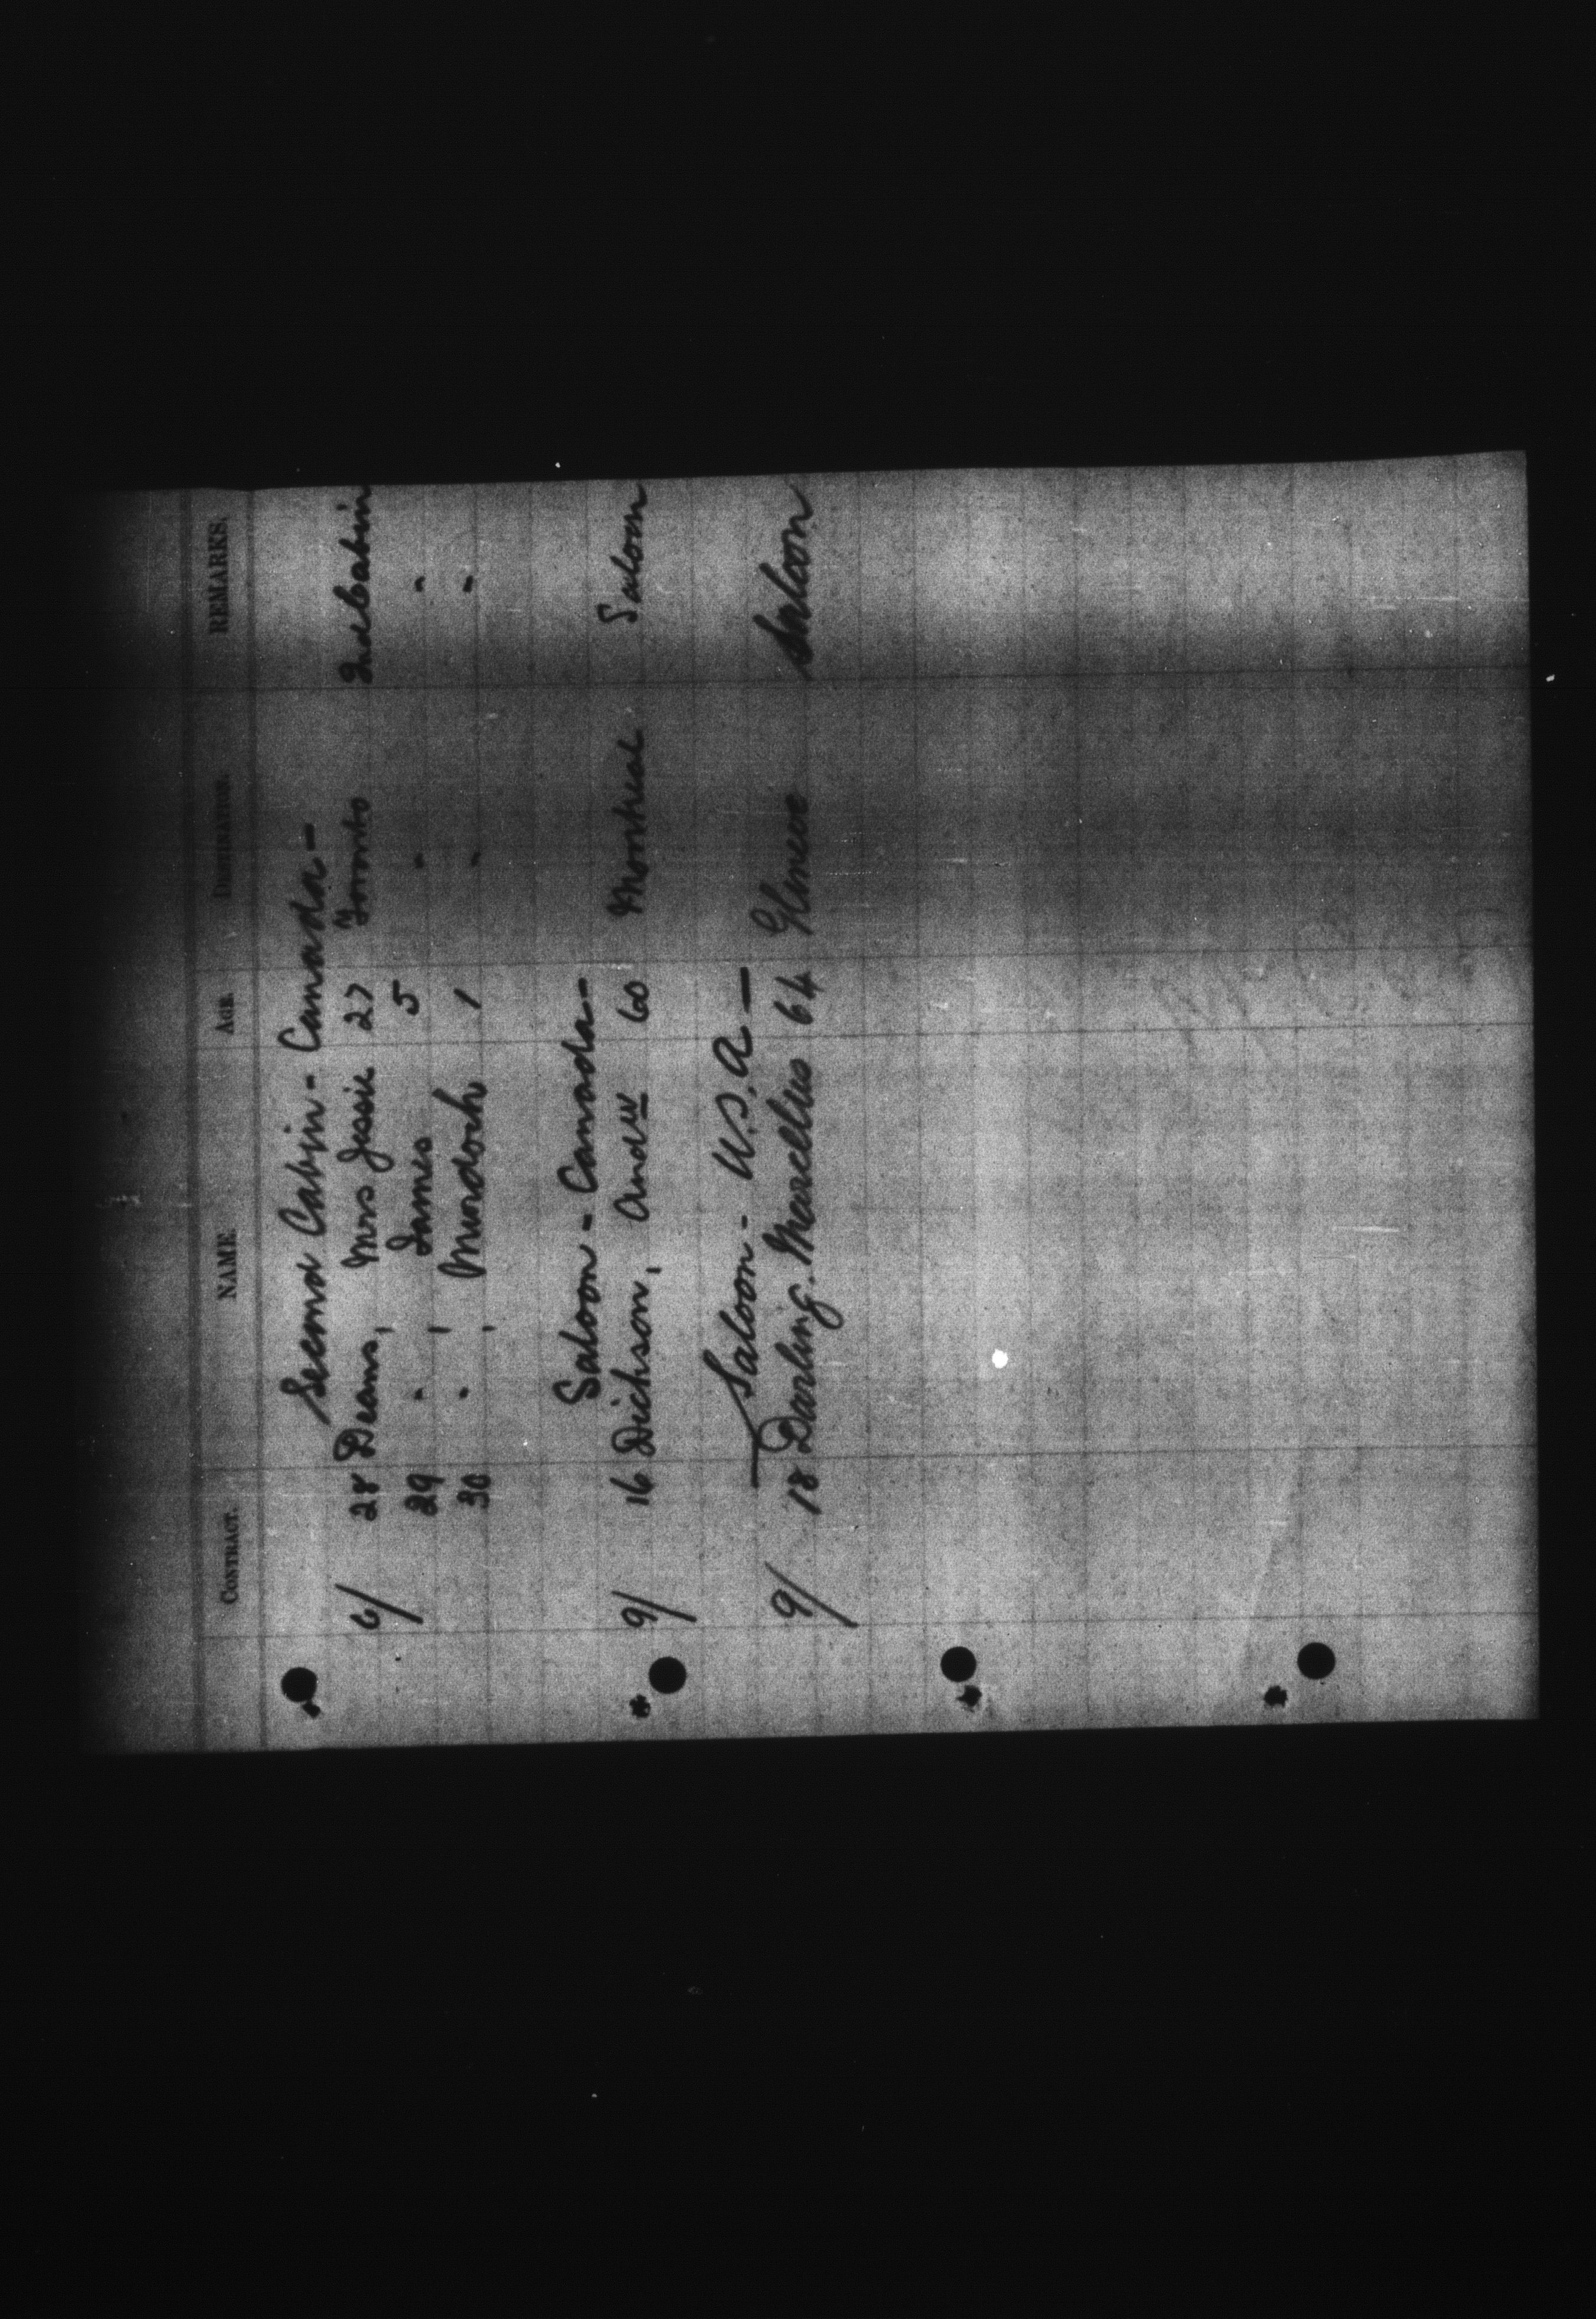 CONTRACT. NAME AGE. DESTINATION. REMARKS.
Second Cabin - Canada -
6/ 28 Deans, Mrs Jessie 27 Toronto 2nd Cabin
29 " , James 5 " "
30 " , Murdoch 1 " "
Saloon - Canada -
9/ 16 Dickson, Andw 60 Montreal Saloon
Saloon - U.S.A -
9/ 18 Darling. Marcellus 64 Saloon